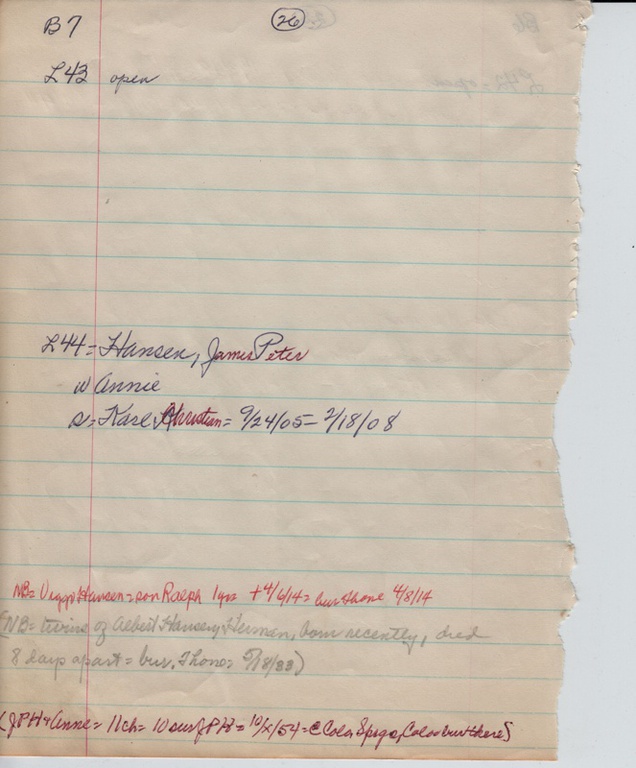 B7
26
L43 open
L44 = Hansen, James Peter
w Annie
s = Karl Christian = 9/24/05 – 2/18/08
NB = Viggo Hansen = son Ralph 1 yr + 4/6/14 = bur 4/8/14
(NB = twins of Albert Hansen, Herman, born recently, died
8 days apart = bur. Thono = 5/18/33)
(JPH + Anne = 11 ch = 10 surv JPH = 10/x/54 = Colo Spgs, Colo bur there)